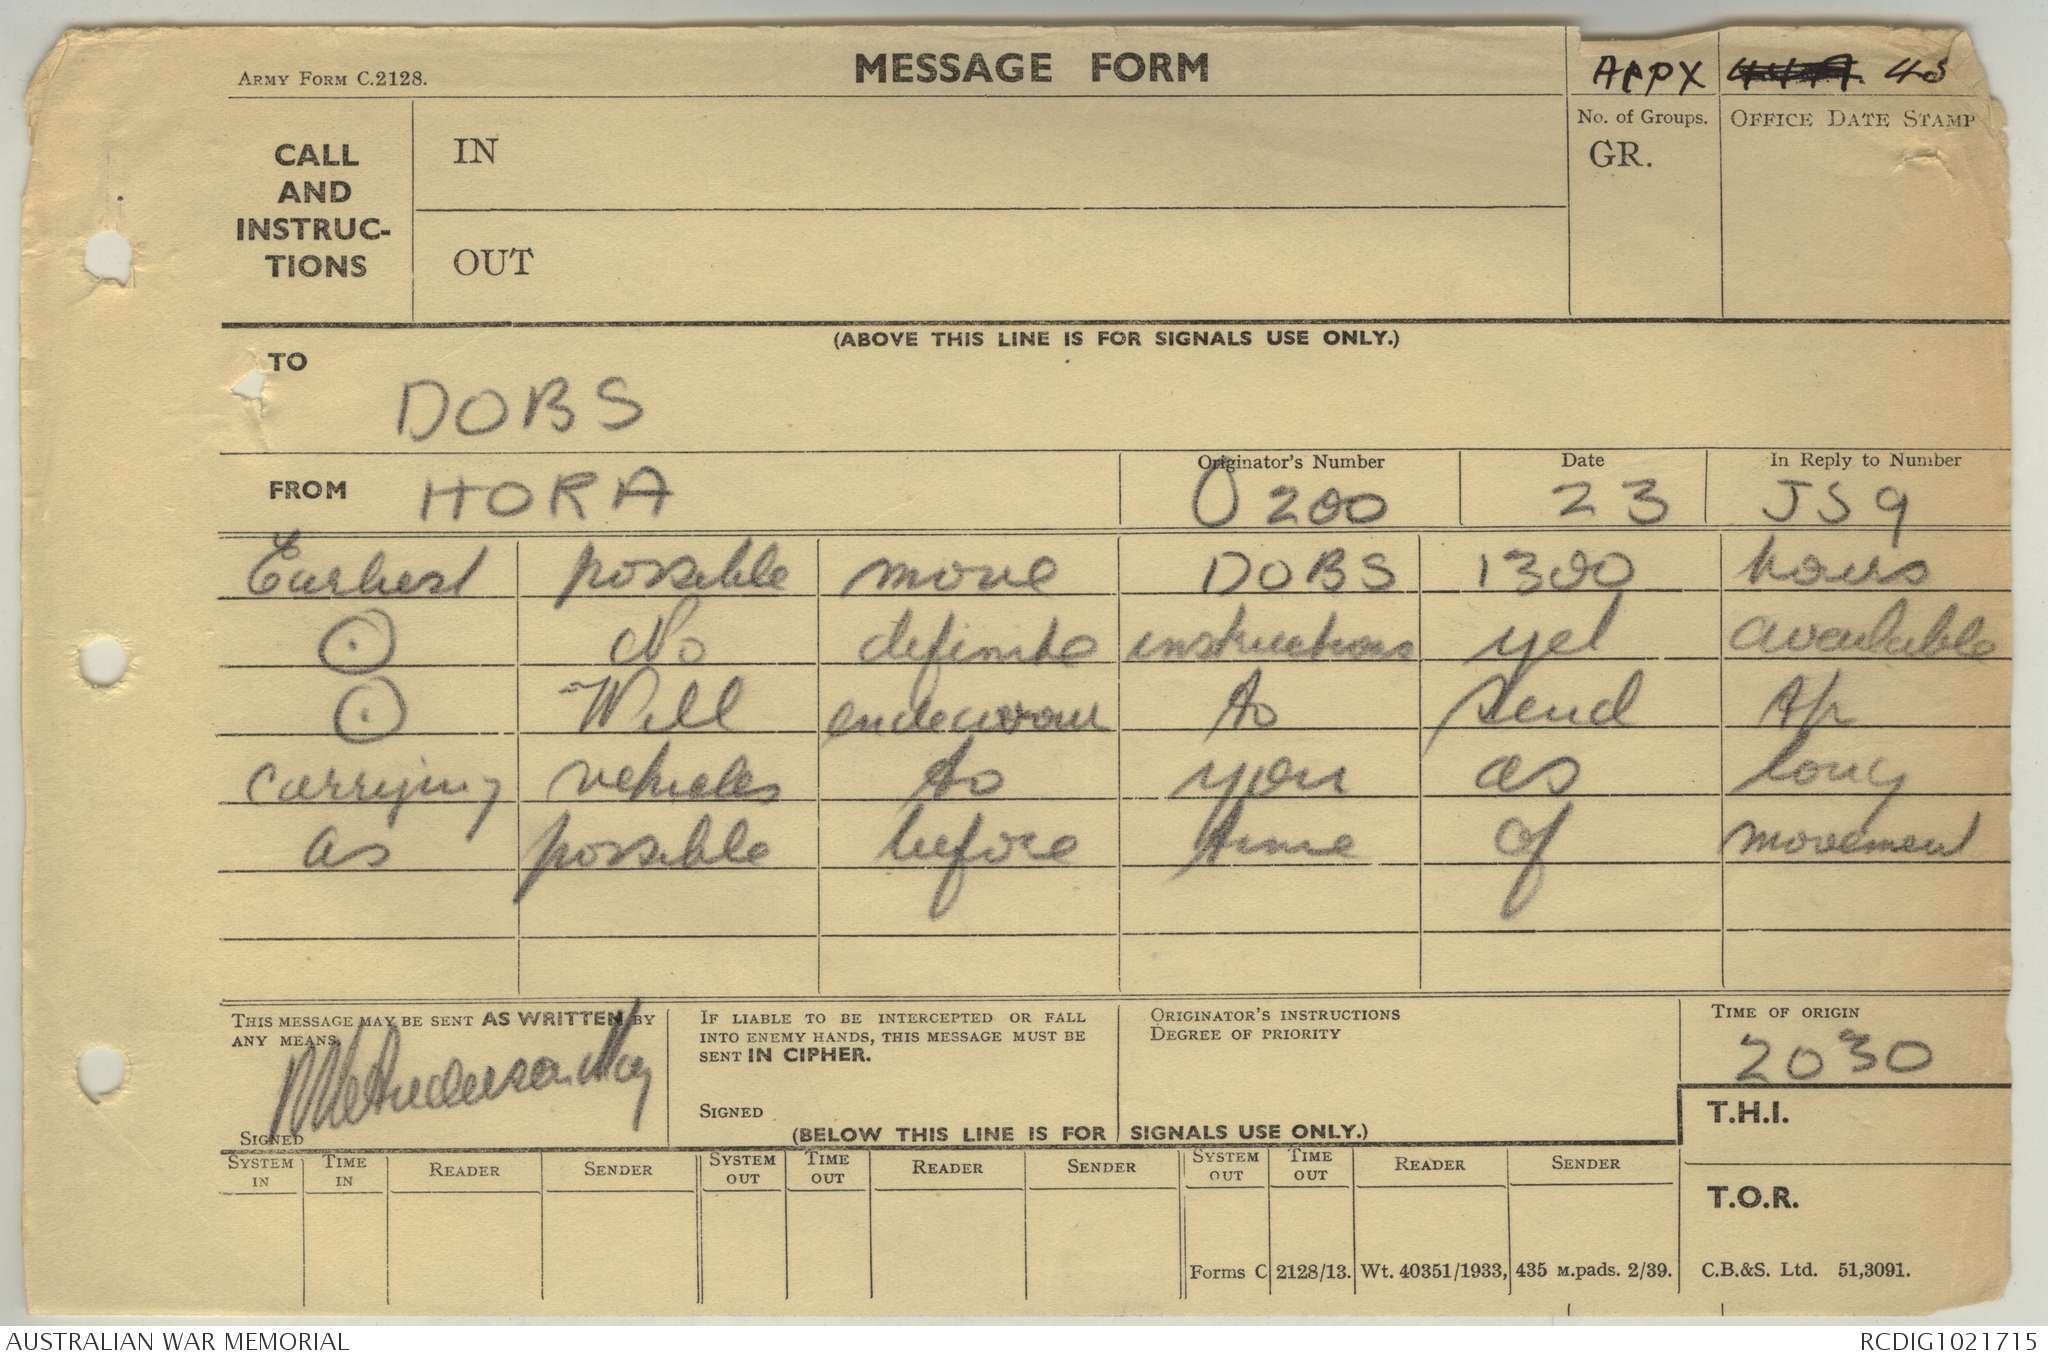 ARMY FORM C.2128.
MESSAGE FORM
APPX 45
CALL AND INSTRUC-TIONS
IN
OUT
No. of Groups.
GR.
OFFICE DATE STAMP
(ABOVE THIS LINE IS FOR SIGNALS USE ONLY.)
TO
DOBS
FROM HORA
Originator's Number
O 200
Date
23
In Reply to Number
JS9
Earliest possible move DOBS 1300 hours
⊙ No definite instructions yet available
⊙ Will endeavour to send tp
carrying vehicles to you as long
as possible before time of movement
THIS MESSAGE MAY BE SENT AS WRITTEN BY
ANY MEANS.
SIGNED
IF LIABLE TO BE INTERCEPTED OR FALL
INTO ENEMY HANDS, THIS MESSAGE MUST BE
SENT IN CIPHER.
SIGNED
ORIGINATOR'S INSTRUCTIONS
DEGREE OF PRIORITY
TIME OF ORIGIN
2030
T.H.I.
(BELOW THIS LINE IS FOR SIGNALS USE ONLY.)
SYSTEM IN TIME IN READER SENDER SYSTEM OUT TIME OUT READER SENDER SYSTEM OUT TIME OUT READER SENDER
T.O.R.
Forms C 2128/13. Wt. 40351/1933, 435 M.pads. 2/39. C.B.&S. Ltd. 51,3091.
AUSTRALIAN WAR MEMORIAL
RCDIG1021715